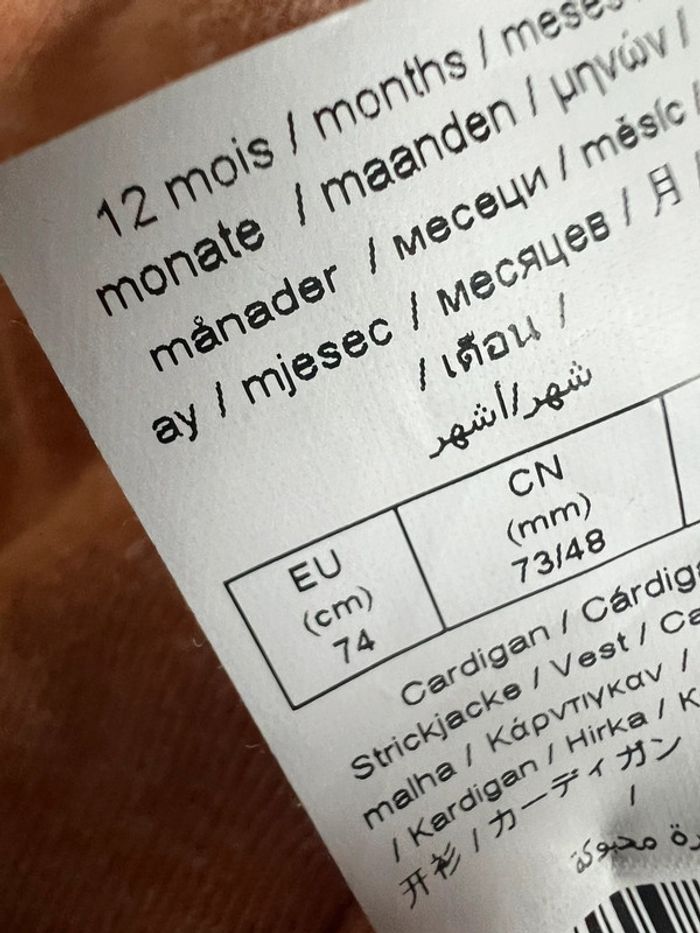 12 mois / months / meses
monate / maanden / μηνών /
månader / месеци / měsíc /
ay / mjesec / месяцев / 月 /
/ เดือน /
شهر/أشهر
EU
(cm)
74
CN
(mm)
73/48
Cardigan / Cárdiga
Strickjacke / Vest / Ca
malha / Κάρντιγκαν /
/ Kardigan / Hirka / K
开衫 / カーディガン
/
محبوكة